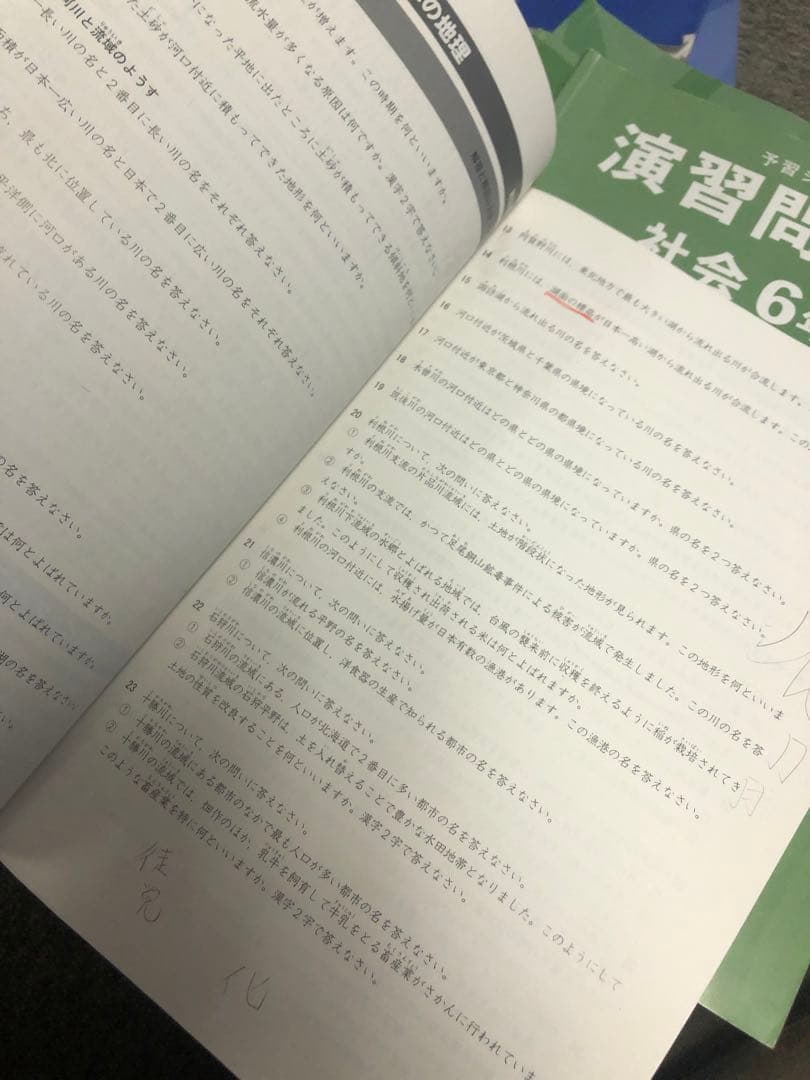 の地理
が増えます。この時期を何といいますか。
流水量が多くなる原因は何ですか。漢字2字で答えなさい。
になった平地に出たところに土砂が積もってできる傾斜地を何と
た土砂が河口付近に積もってできた地形を何といいますか。
河川と流域のようす
一長い川の名と2番目に長い川の名をそれぞれ答えなさい。
面積が日本一広い川の名と日本で2番目に広い川の名をそれぞれ答えなさい。
ち、最も北に位置している川の名を答えなさい。
平洋側に河口がある川の名を答えなさい。
流れている川の名を答えなさい。
の名を答えなさい。
は何とよばれていますか。
何とよばれていますか。
湖の名を答えなさい。
予習シ
演習問
社会 6年
13 阿賀野川には、東北地方で最も大きい湖から流れ出る川が合流します。
14 利根川には、湖面の標高が日本一高い湖から流れ出る川が合流します。この
15 諏訪湖から流れ出る川の名を答えなさい。
16 河口付近が茨城県と千葉県の県境になっている川の名を答えなさい。
17 河口付近が東京都と神奈川県の都県境になっている川の名を答えなさい。
18 木曽川の河口付近はどの県とどの県の県境になっていますか。県の名を2つ答えなさい。
19 筑後川の河口付近はどの県とどの県の県境になっていますか。県の名を2つ答えなさい。
20 利根川について、次の問いに答えなさい。
① 利根川支流の片品川流域には、土地が階段状になった地形が見られます。この地形を何といいま
すか。
② 利根川の支流では、かつて足尾銅山鉱毒事件による被害が流域で発生しました。この川の名を答
えなさい。
③ 利根川下流域の水郷とよばれる地域では、台風の襲来前に収穫を終えるように稲が栽培されてき
ました。このようにして収穫され出荷される米は何とよばれますか。
④ 利根川の河口付近には、水揚げ量が日本有数の漁港があります。この漁港の名を答えなさい。
21 信濃川について、次の問いに答えなさい。
① 信濃川が流れる平野の名を答えなさい。
② 信濃川の流域に位置し、洋食器の生産で知られる都市の名を答えなさい。
22 石狩川について、次の問いに答えなさい。
① 石狩川の流域にある、人口が北海道で2番目に多い都市の名を答えなさい。
② 石狩川流域の石狩平野は、土を入れ替えることで豊かな水田地帯となりました。このようにして
土地の性質を改良することを何といいますか。漢字2字で答えなさい。
23 十勝川について、次の問いに答えなさい。
① 十勝川の流域にある都市のなかで最も人口が多い都市の名を答えなさい。
② 十勝川の流域では、畑作のほか、乳牛を飼育して牛乳をとる畜産業がさかんに行われていま
このような畜産業を特に何といいますか。漢字2字で答えなさい。
化